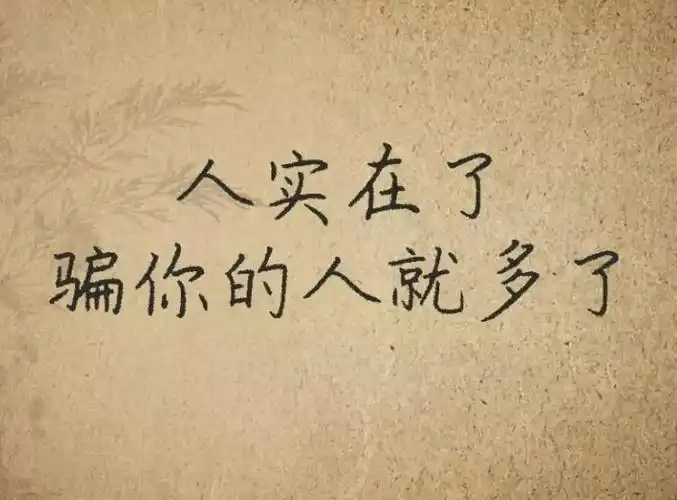 人实在了
骗你的人就多了